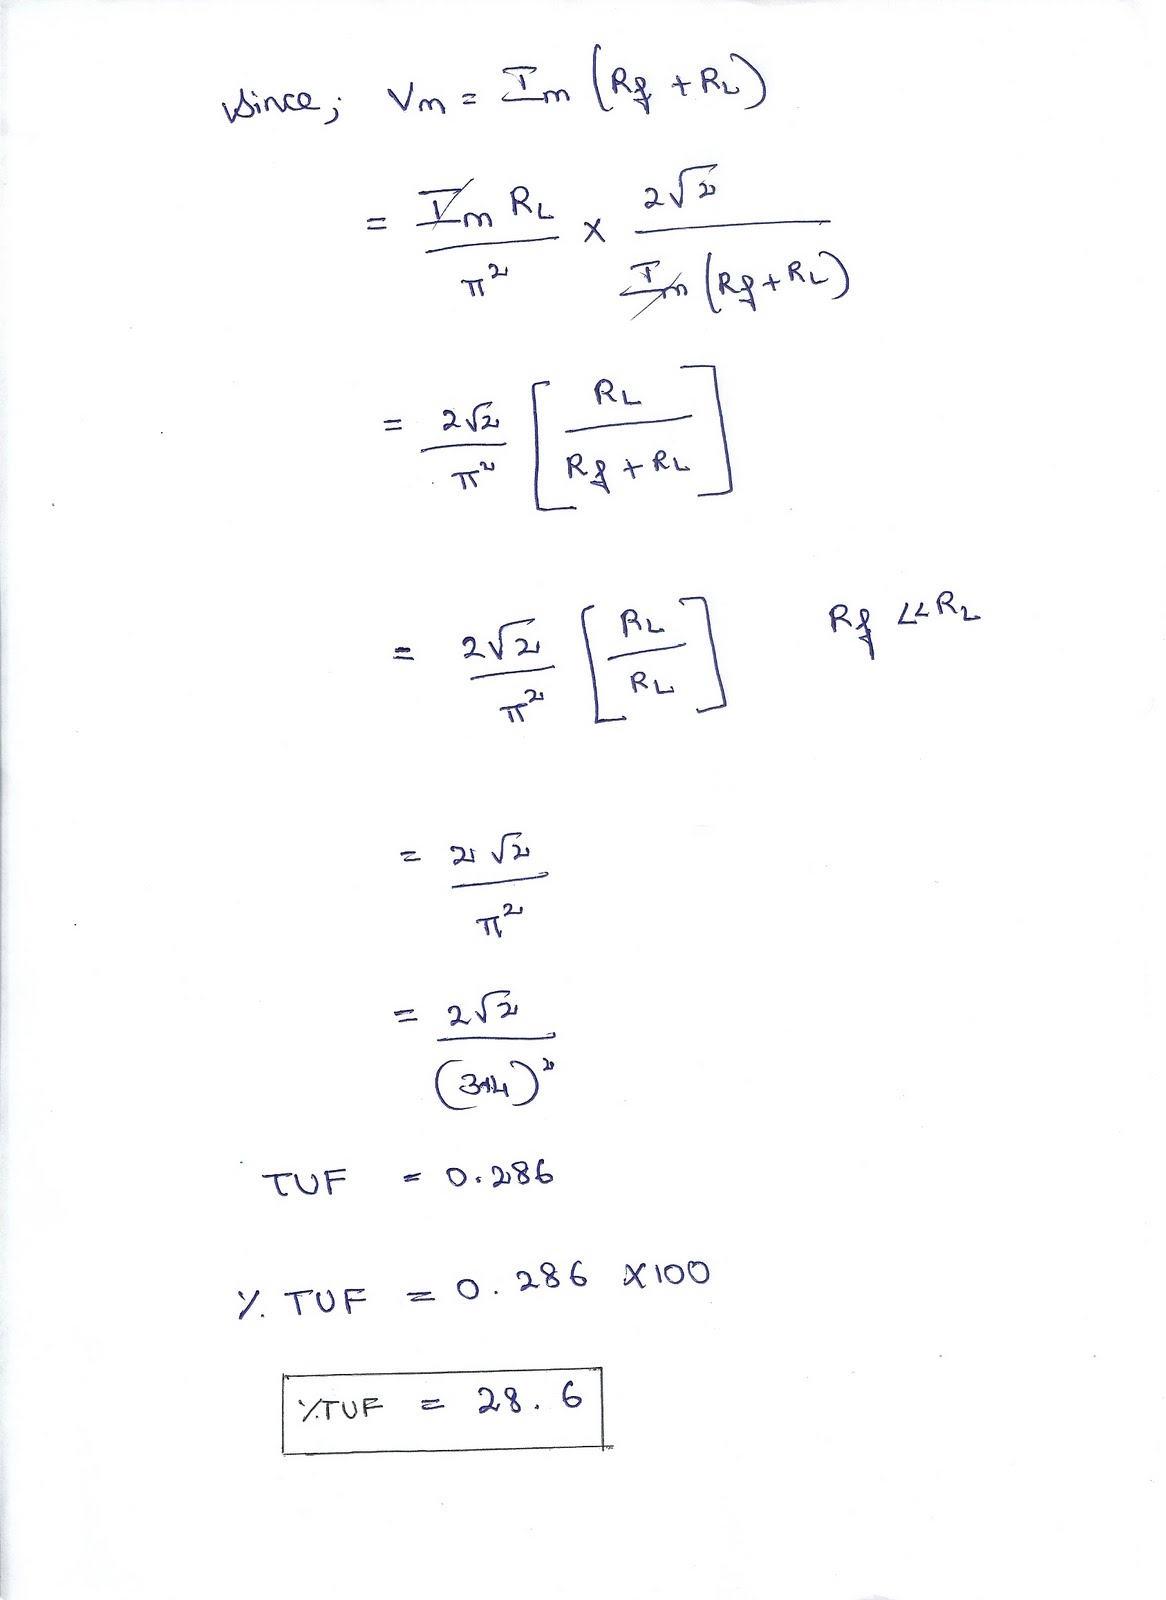 since; Vm = Im (Rf + RL)
= Im RL / π² × 2√2 / Im (Rf + RL)
= 2√2 / π² [ RL / Rf + RL ]
= 2√2 / π² [ RL / RL ] Rf << RL
= 2√2 / π²
= 2√2 / (3.14)²
TUF = 0.286
% TUF = 0.286 × 100
% TUF = 28.6